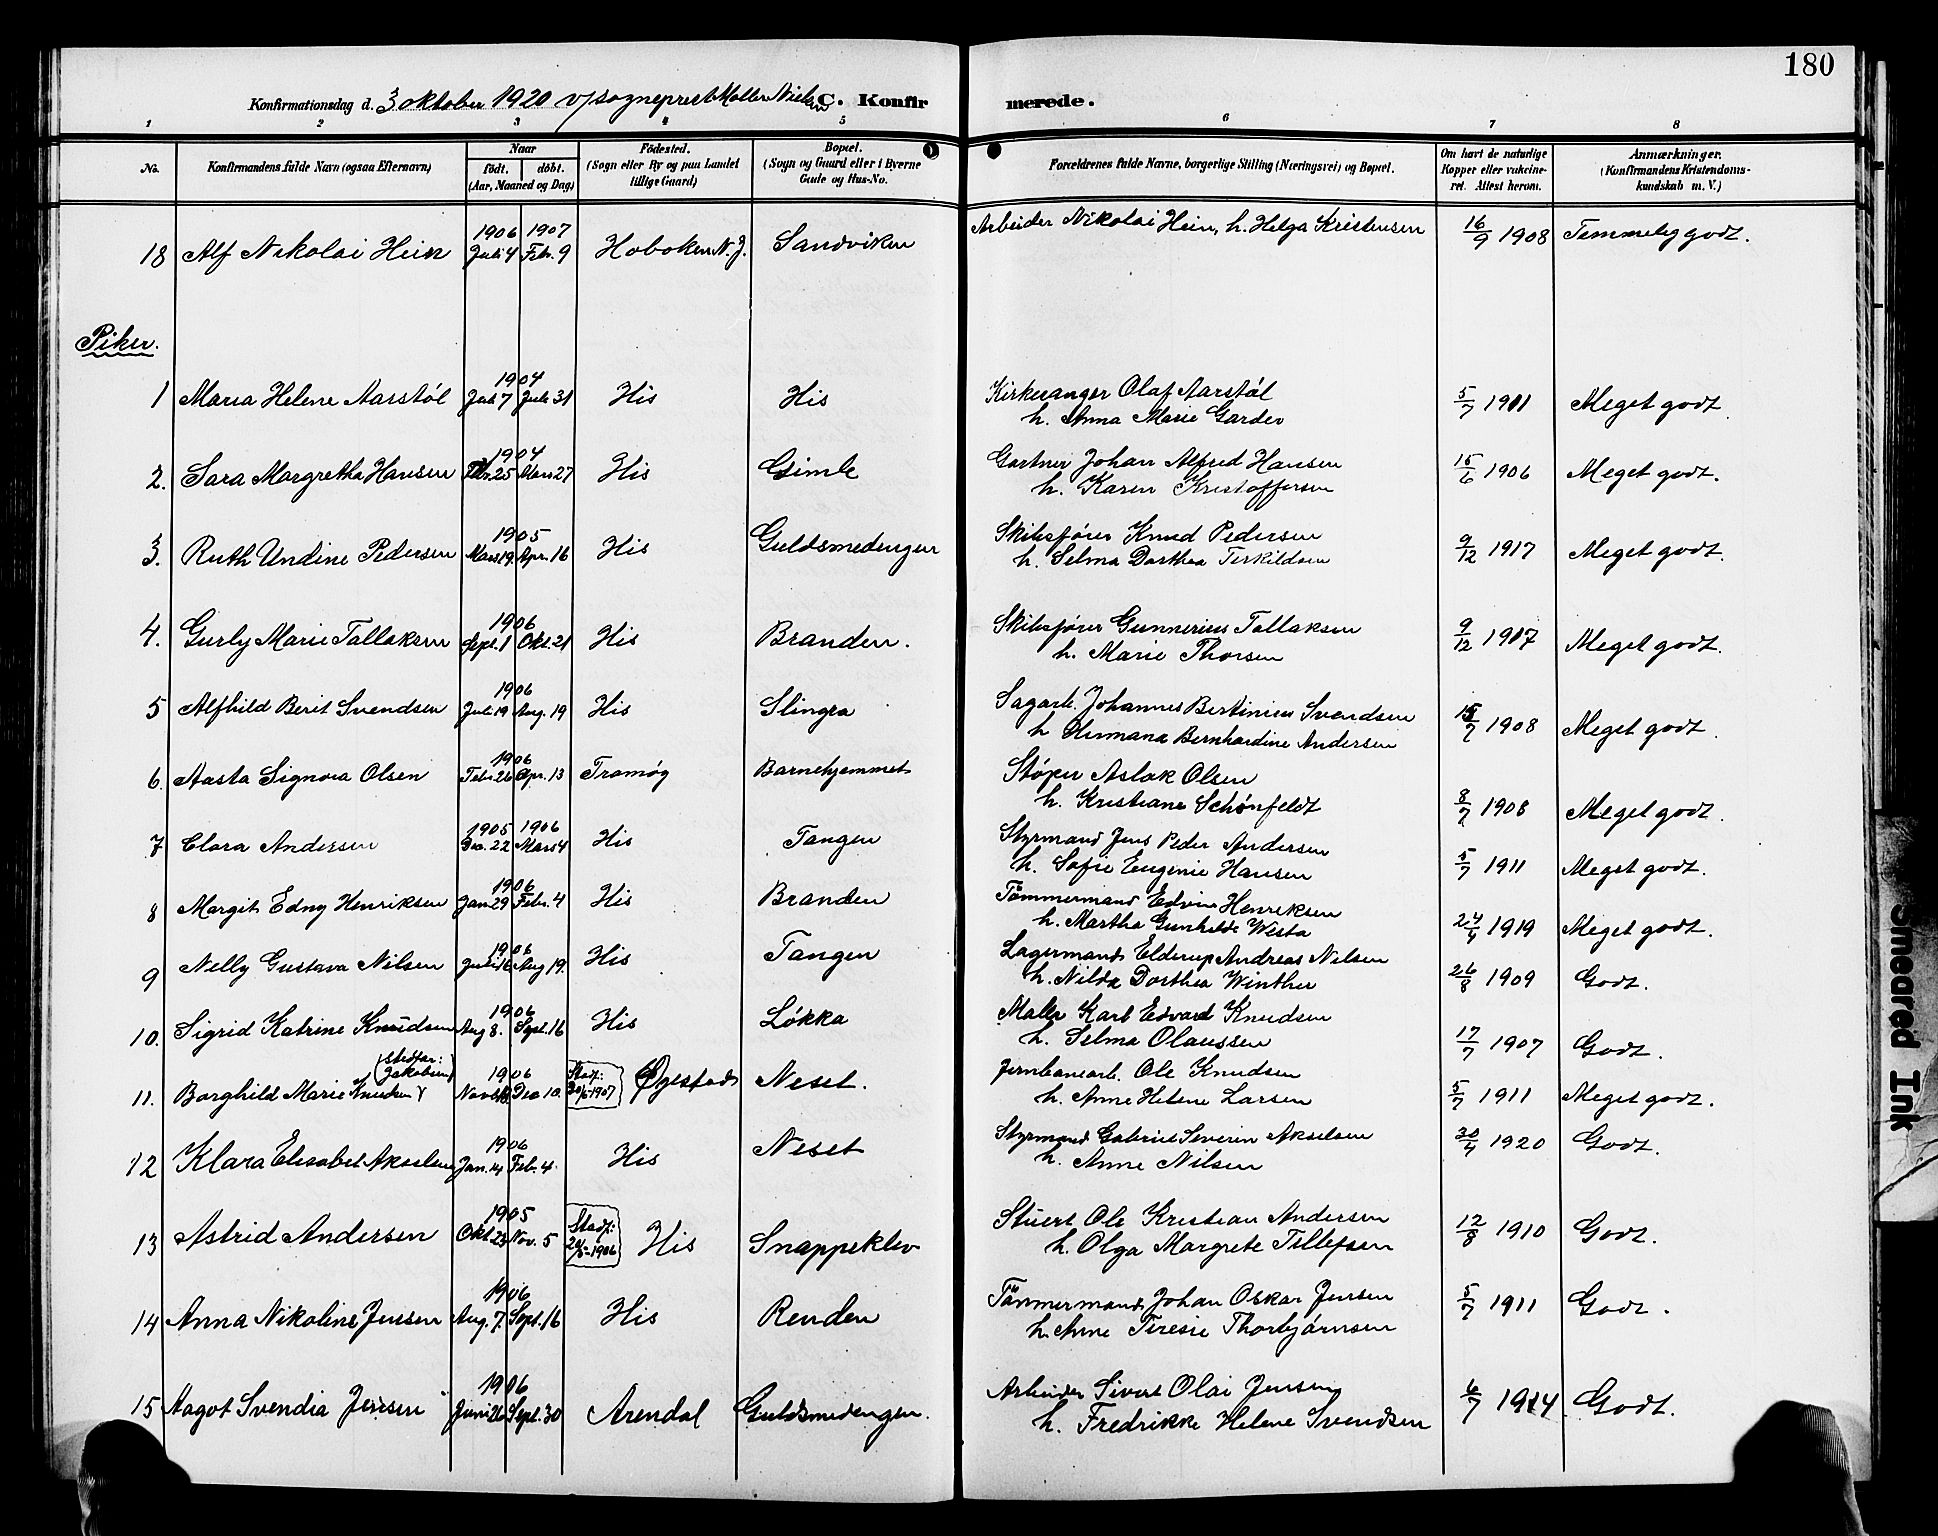 180
Konfirmationsdag d. 3 oktober 1920 v/sogneprest Møller Nielsen C. Konfir merede.
1 2 3 4 5 6 7 8
No. Konfirmandens fulde Navn (ogsaa Efternavn) Naar født. døbt. (Aar, Maaned og Dag) Fødested. (Sogn eller By og paa Landet tillige Gaard) Bopæl. (Sogn og Gaard eller i Byerne Gade og Hus-No. Forældrenes fulde Navne, borgerlige Stilling (Næringsvei) og Bopæl. Om havt de naturlige Kopper eller vakcineret. Attest herom. Anmærkninger. (Konfirmandens Kristendomskundskab m. V.)
18 Alf Nikolai Hein 1906 Juli 4 1907 Febr. 9 Hoboken N. J. Sandviken Arbeider Nikolai Hein, h. Helga Kristensen 16/9 1908 Temmelig godt.
Piker.
1 Maria Helene Aarstøl 1904 Juli 7 Juli 31 His His Kirkesanger Olaf Aarstøl
h. Anna Marie Garder 5/7 1911 Meget godt.
2. Sara Margretha Hansen 1904 Febr. 25 Mars 27 His Gimle Gartner Johan Alfred Hansen
h. Karen Kristoffersen 15/6 1906 Meget godt.
3. Ruth Undine Pedersen 1905 Mars 19. Apr. 16 His Guldsmedengen Skibsfører Knud Pedersen
h. Selma Dorthea Terkildsen 9/12 1917 Meget godt.
4. Gurly Marie Tallaksen 1906 Sept. 1 Okt. 21 His Branden. Skibsfører Gunnerius Tallaksen
h. Marie Thorsen 9/12 1917 Meget godt.
5 Alfhild Berit Svendsen 1906 Juli 19 Aug. 19 His Slingra Sagarb. Johannes Bertinius Svendsen
h Hermana Bernhardine Andersen 15/7 1908 Meget godt.
6. Aasta Signora Olsen 1906 Febr. 26 Apr. 13 Tromøy Barnehjemmet Støper Aslak Olsen
h. Kristiane Schønfeldt 8/7 1908 Meget godt.
7 Clara Andersen 1905 Des. 22 1906 Mars 4 His Tangen Styrmand Jens Peder Andersen
h. Sofie Eugenie Hansen 5/7 1911 Meget godt.
8 Margit Edny Henriksen 1906 Jan. 29 Febr. 4 His Branden Tømmermand Edvin Henriksen
h. Martha Gunhilde Westa 24/4 1919 Meget godt.
9 Nelly Gustava Nilsen 1906 Juli 16 Aug 19. His Tangen Lagermand Elderup Andreas Nilsen
h. Nilda Dorthea Winther 26/8 1909 Godt.
10. Sigrid Katrine Knudsen 1906 Aug 8. Sept. 16 His Løkka Maler Karl Edvard Knudsen
h. Selma Olaussen 17/7 1907 Godt.
11. Borghild Marie Knudsen (Stedfar: Jakobsen) 1906 Nov. Des 10. Stadf: 30/6-1907 Øyestad Neset. Jernbanearb. Ole Knudsen
h. Anne Helene Larsen 5/7 1911 Meget godt.
12 Klara Elisabet Akselsen 1906 Jan. 14 Feb. 4. His Neset Styrmand Gabriel Severin Akselsen
h. Anne Nilsen 30/4 1920 Godt.
13 Astrid Andersen 1905 Okt. 23 Nov. 5 Stadf: 20/5-1906 His Snappeklev Stuert Ole Kristian Andersen
h. Olga Margrete Tellefsen 12/8 1910 Godt.
14 Anna Nikoline Jensen 1906 Aug. 7. Sept. 16 His Renden Tømmermand Johan Oskar Jensen
h. Anne Teresie Thorbjørnsen 5/7 1911 Godt.
15 Aagot Svendia Jensen 1906 Juni 26 Sept. 30 Arendal Guldsmedengen. Arbeider Sivert Olai Jensen
h. Fredrikke Helene Svendsen 6/7 1914 Godt.
Smeared Ink